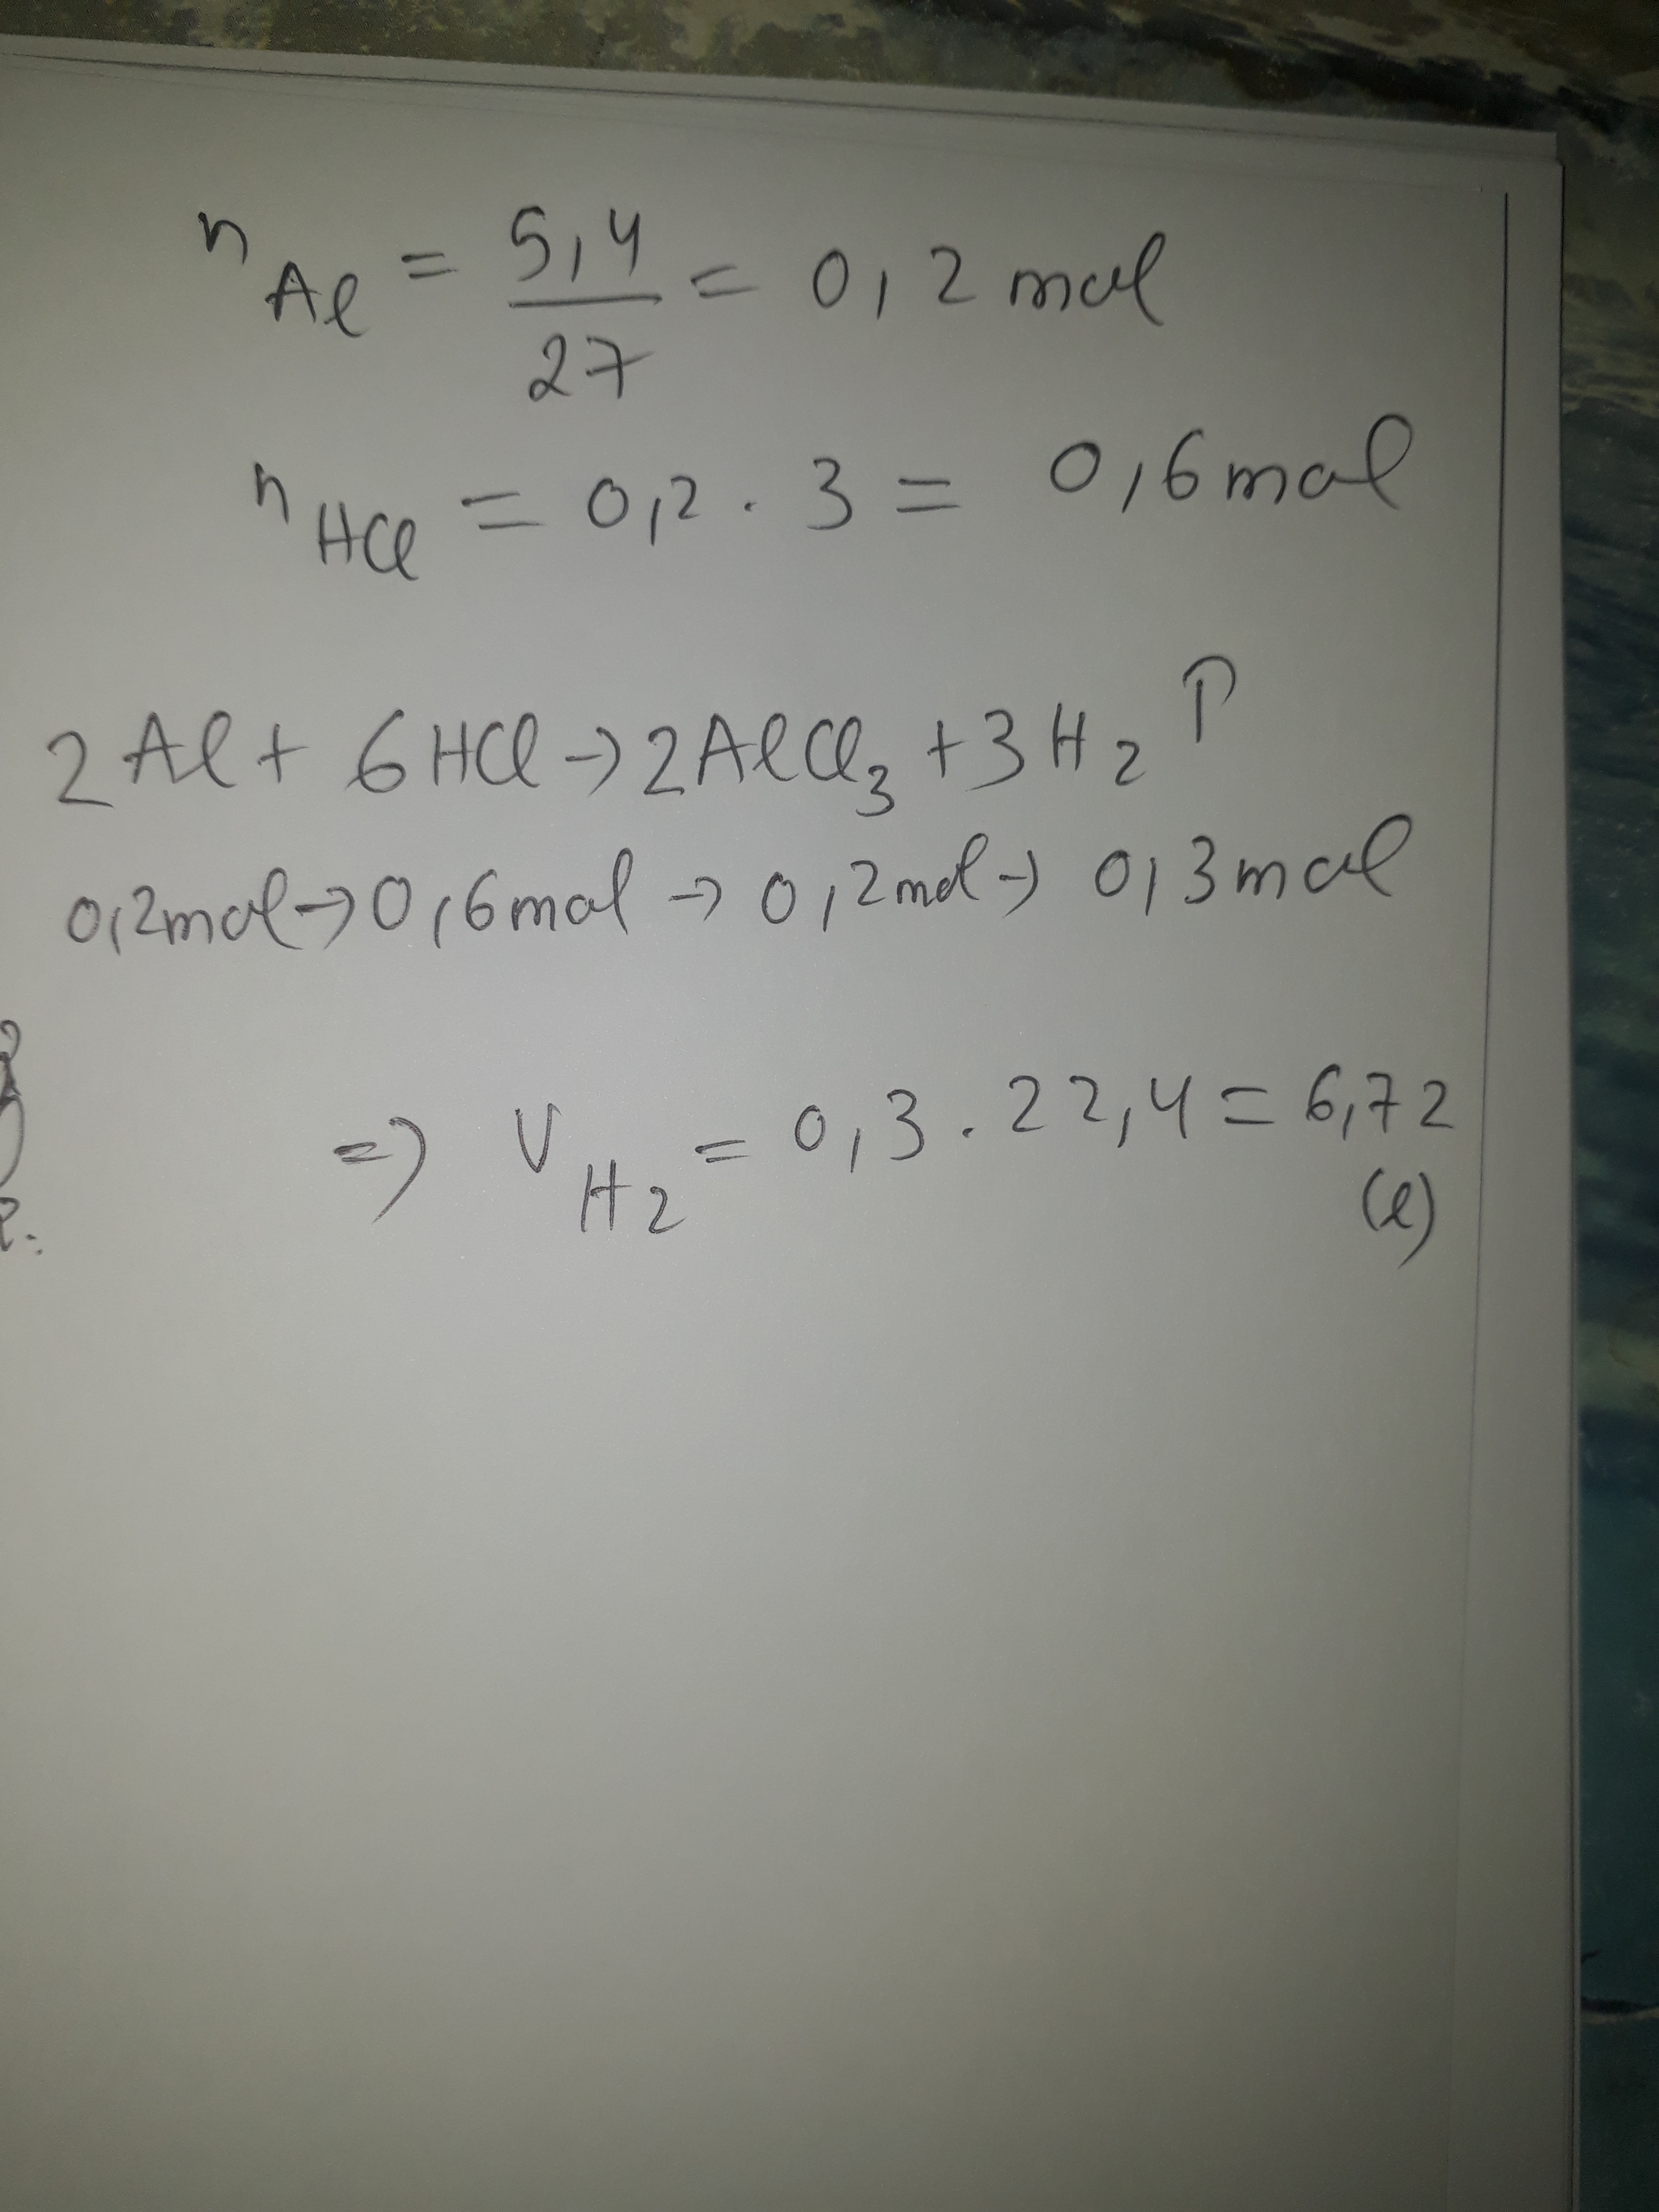 n Al = 5,4 / 27 = 0,2 mol
n HCl = 0,2 . 3 = 0,6 mol
2 Al + 6 HCl → 2 AlCl₃ + 3 H₂ ↑
0,2 mol → 0,6 mol → 0,2 mol → 0,3 mol
=> V H₂ = 0,3 . 22,4 = 6,72
(l)